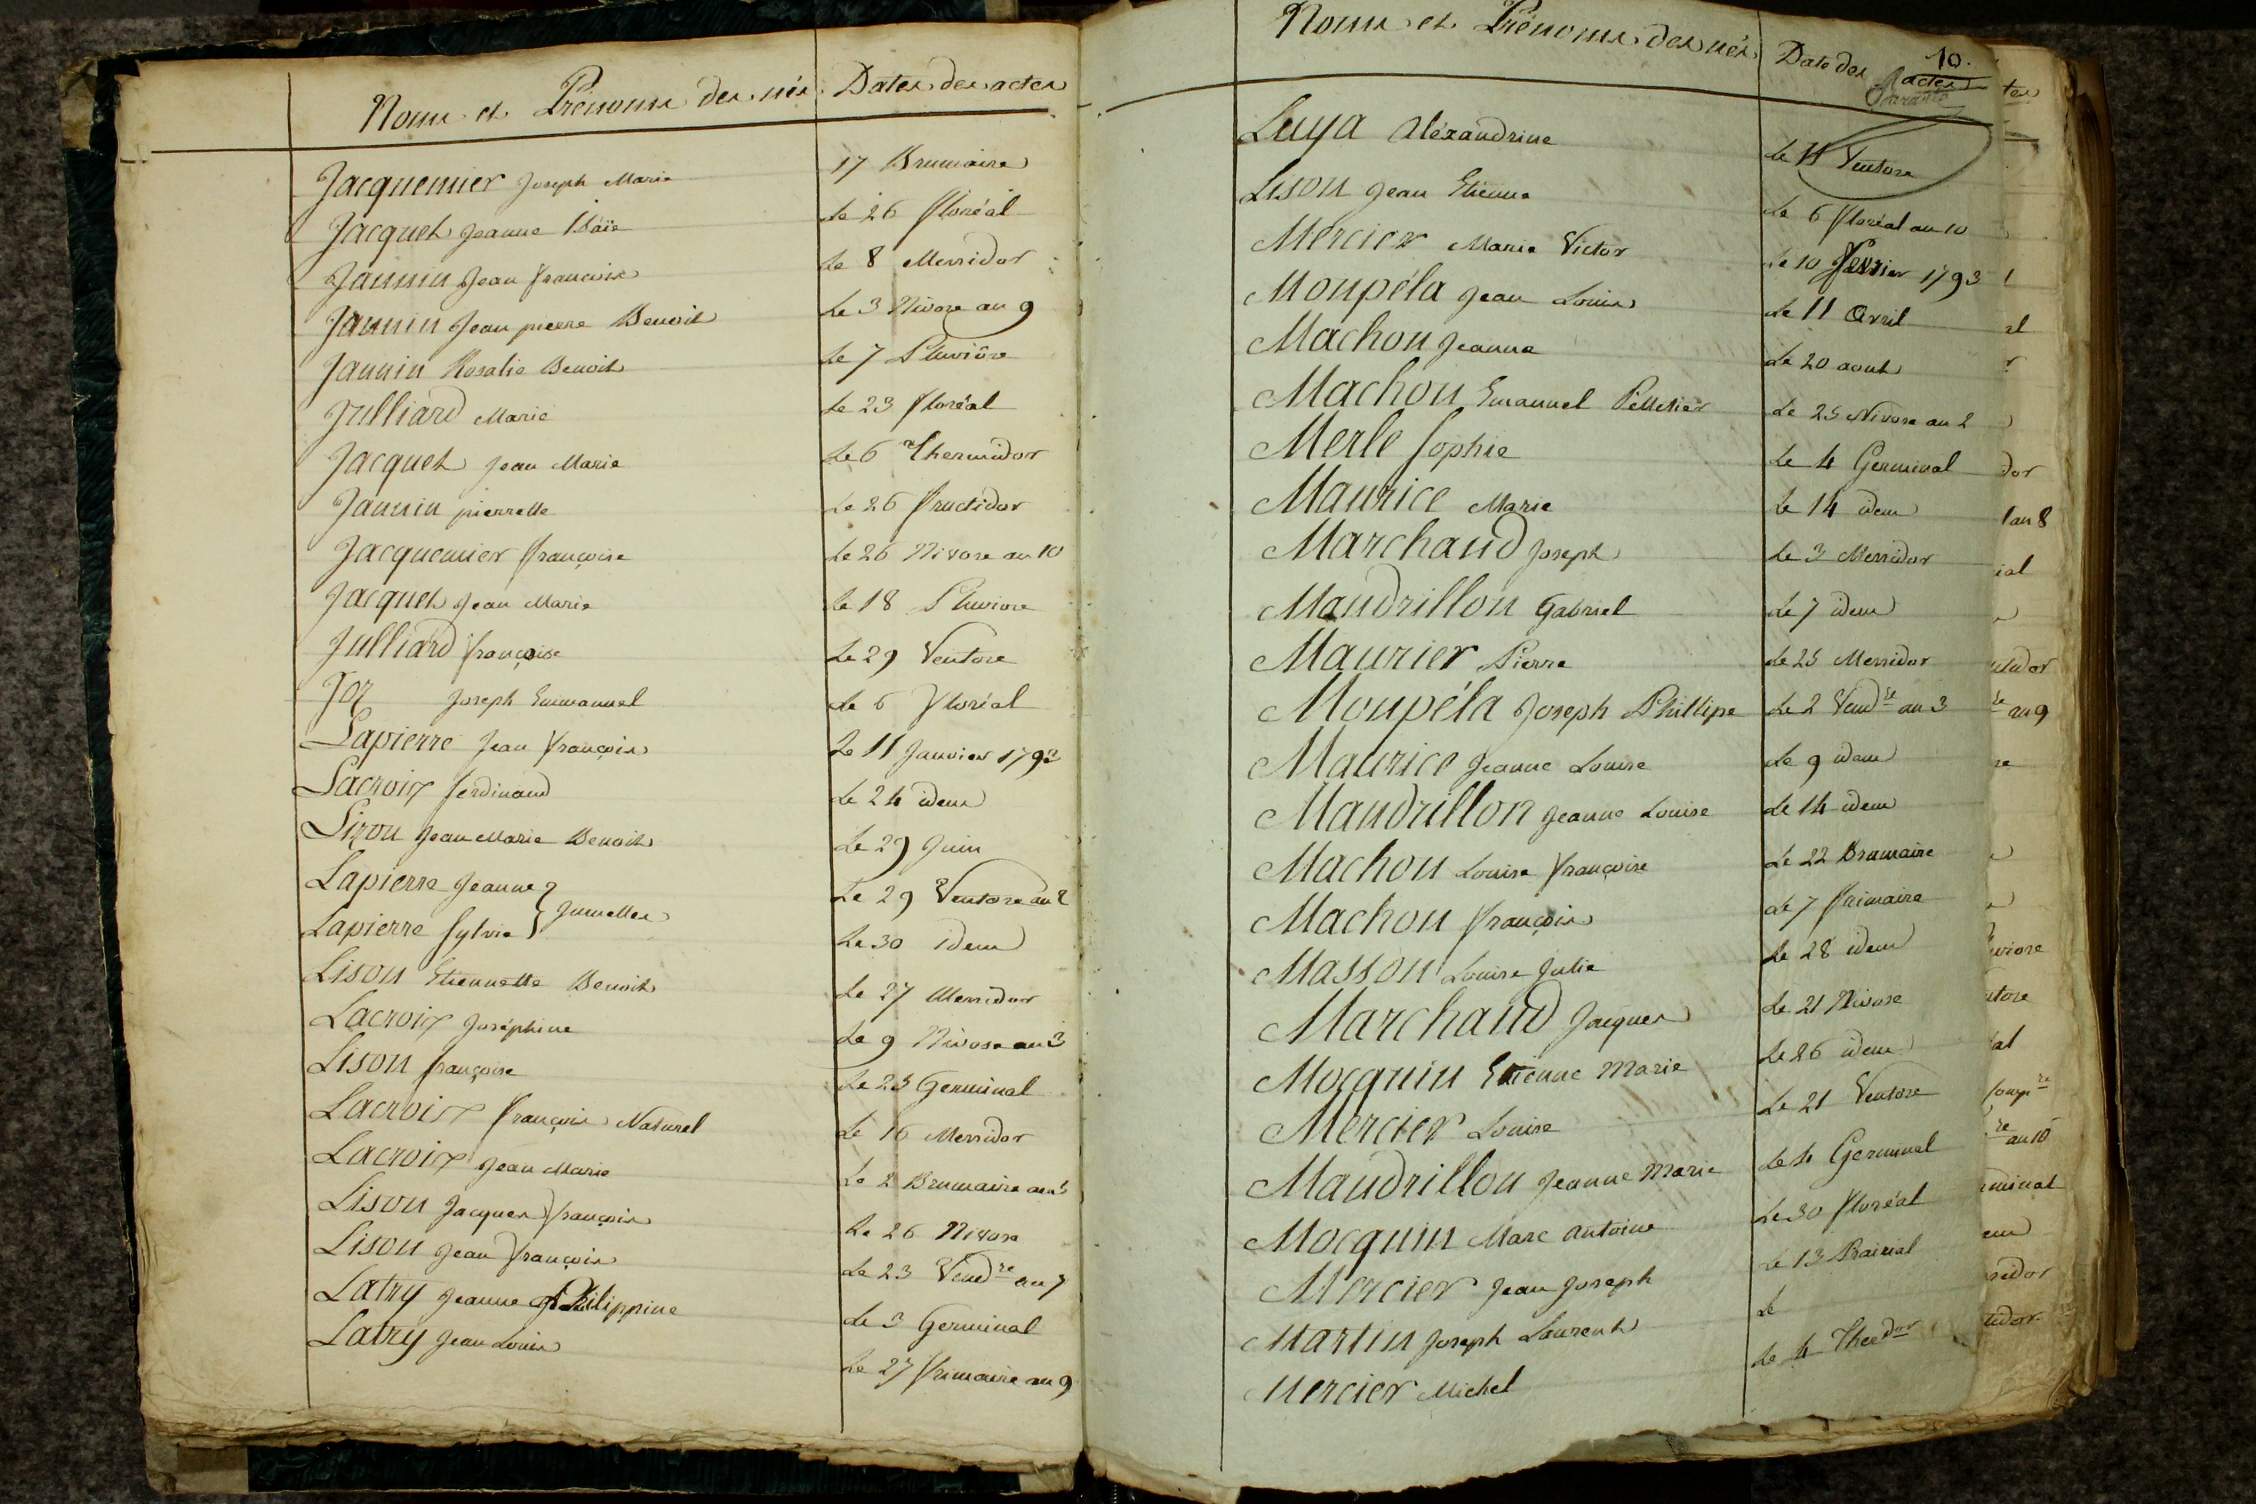 Noms et Prénoms des nés Dates des actes
Jacquemier Joseph Marie 17 Brumaire
Jacquet Jeanne le 26 floréal
Jannin Jean françois le 8 Messidor
Jannin Jean pierre Benoit le 3 Nivose an 9
Jannin Rosalie Benoit le 7 Pluviôse
Julliard Marie le 23 floréal
Jacquet Jean Marie le 6 Thermidor
Jannin pierrette le 26 fructidor
Jacquemier françoise le 26 Nivose an 10
Jacquet Jean Marie le 18 Pluviose
Julliard françoise le 29 Ventose
Joz Joseph Emmanuel le 6 floréal
Lapierre Jean françois le 11 Janvier 1793
Lacroix ferdinand le 24 idem
Lizon Jean Marie Benoit le 29 Juin
Lapierre Jeanne } Jumelles le 29 Ventose an 2
Lapierre Sylvie le 30 idem
Lison Etiennette Benoit le 27 Messidor
Lacroix Joséphine le 9 Nivose an 3
Lison françoise le 23 Germinal
Lacroix françois Naturel le 16 Messidor
Lacroix Jean Marie le 2 Brumaire
Lison Jacques françois le 26 Nivose
Lison Jean françois le 23 Vendre an 7
Latry Jeanne Philippine le 3 Germinal
Latry Jean Louis le 27 frimaire an 9
10.
Noms et Prénoms des nés Date des actes
Luya Aléxandrine le 11 Ventose
Lison Jean Etienne le 6 floréal an 10
Mercier Marie Victor le 10 fevrier 1793
Moupéla Jean Louis le 11 Avril
Machon Jeanne le 20 aout
Machon Emanuel Pelletier le 25 Nivose an 2
Merle Sophie le 4 Germinal
Maurice Marie le 14 idem
Marchand Joseph le 3 Messidor
Mandrillon Gabriel le 7 idem
Maurier Pierre le 25 Messidor
Moupéla Joseph Phillipe le 2 Vendre an 3
Maurice Jeanne Louise le 9 idem
Mandrillon Jeanne Louise le 14 idem
Machon Louise françoise le 22 Brumaire
Machon françois le 7 frimaire
Masson Louise Julie le 28 idem
Marchand Jacques le 21 Nivose
Mocquin Etienne Marie le 26 idem
Mercier Louise le 21 Ventose
Mandrillon Jeanne Marie le 4 Germinal
Mocquin Marc antoine le 30 floréal
Mercier Jean Joseph le 13 Prairial
Martin Joseph Laurent le
Mercier Michel le 4 Therdor